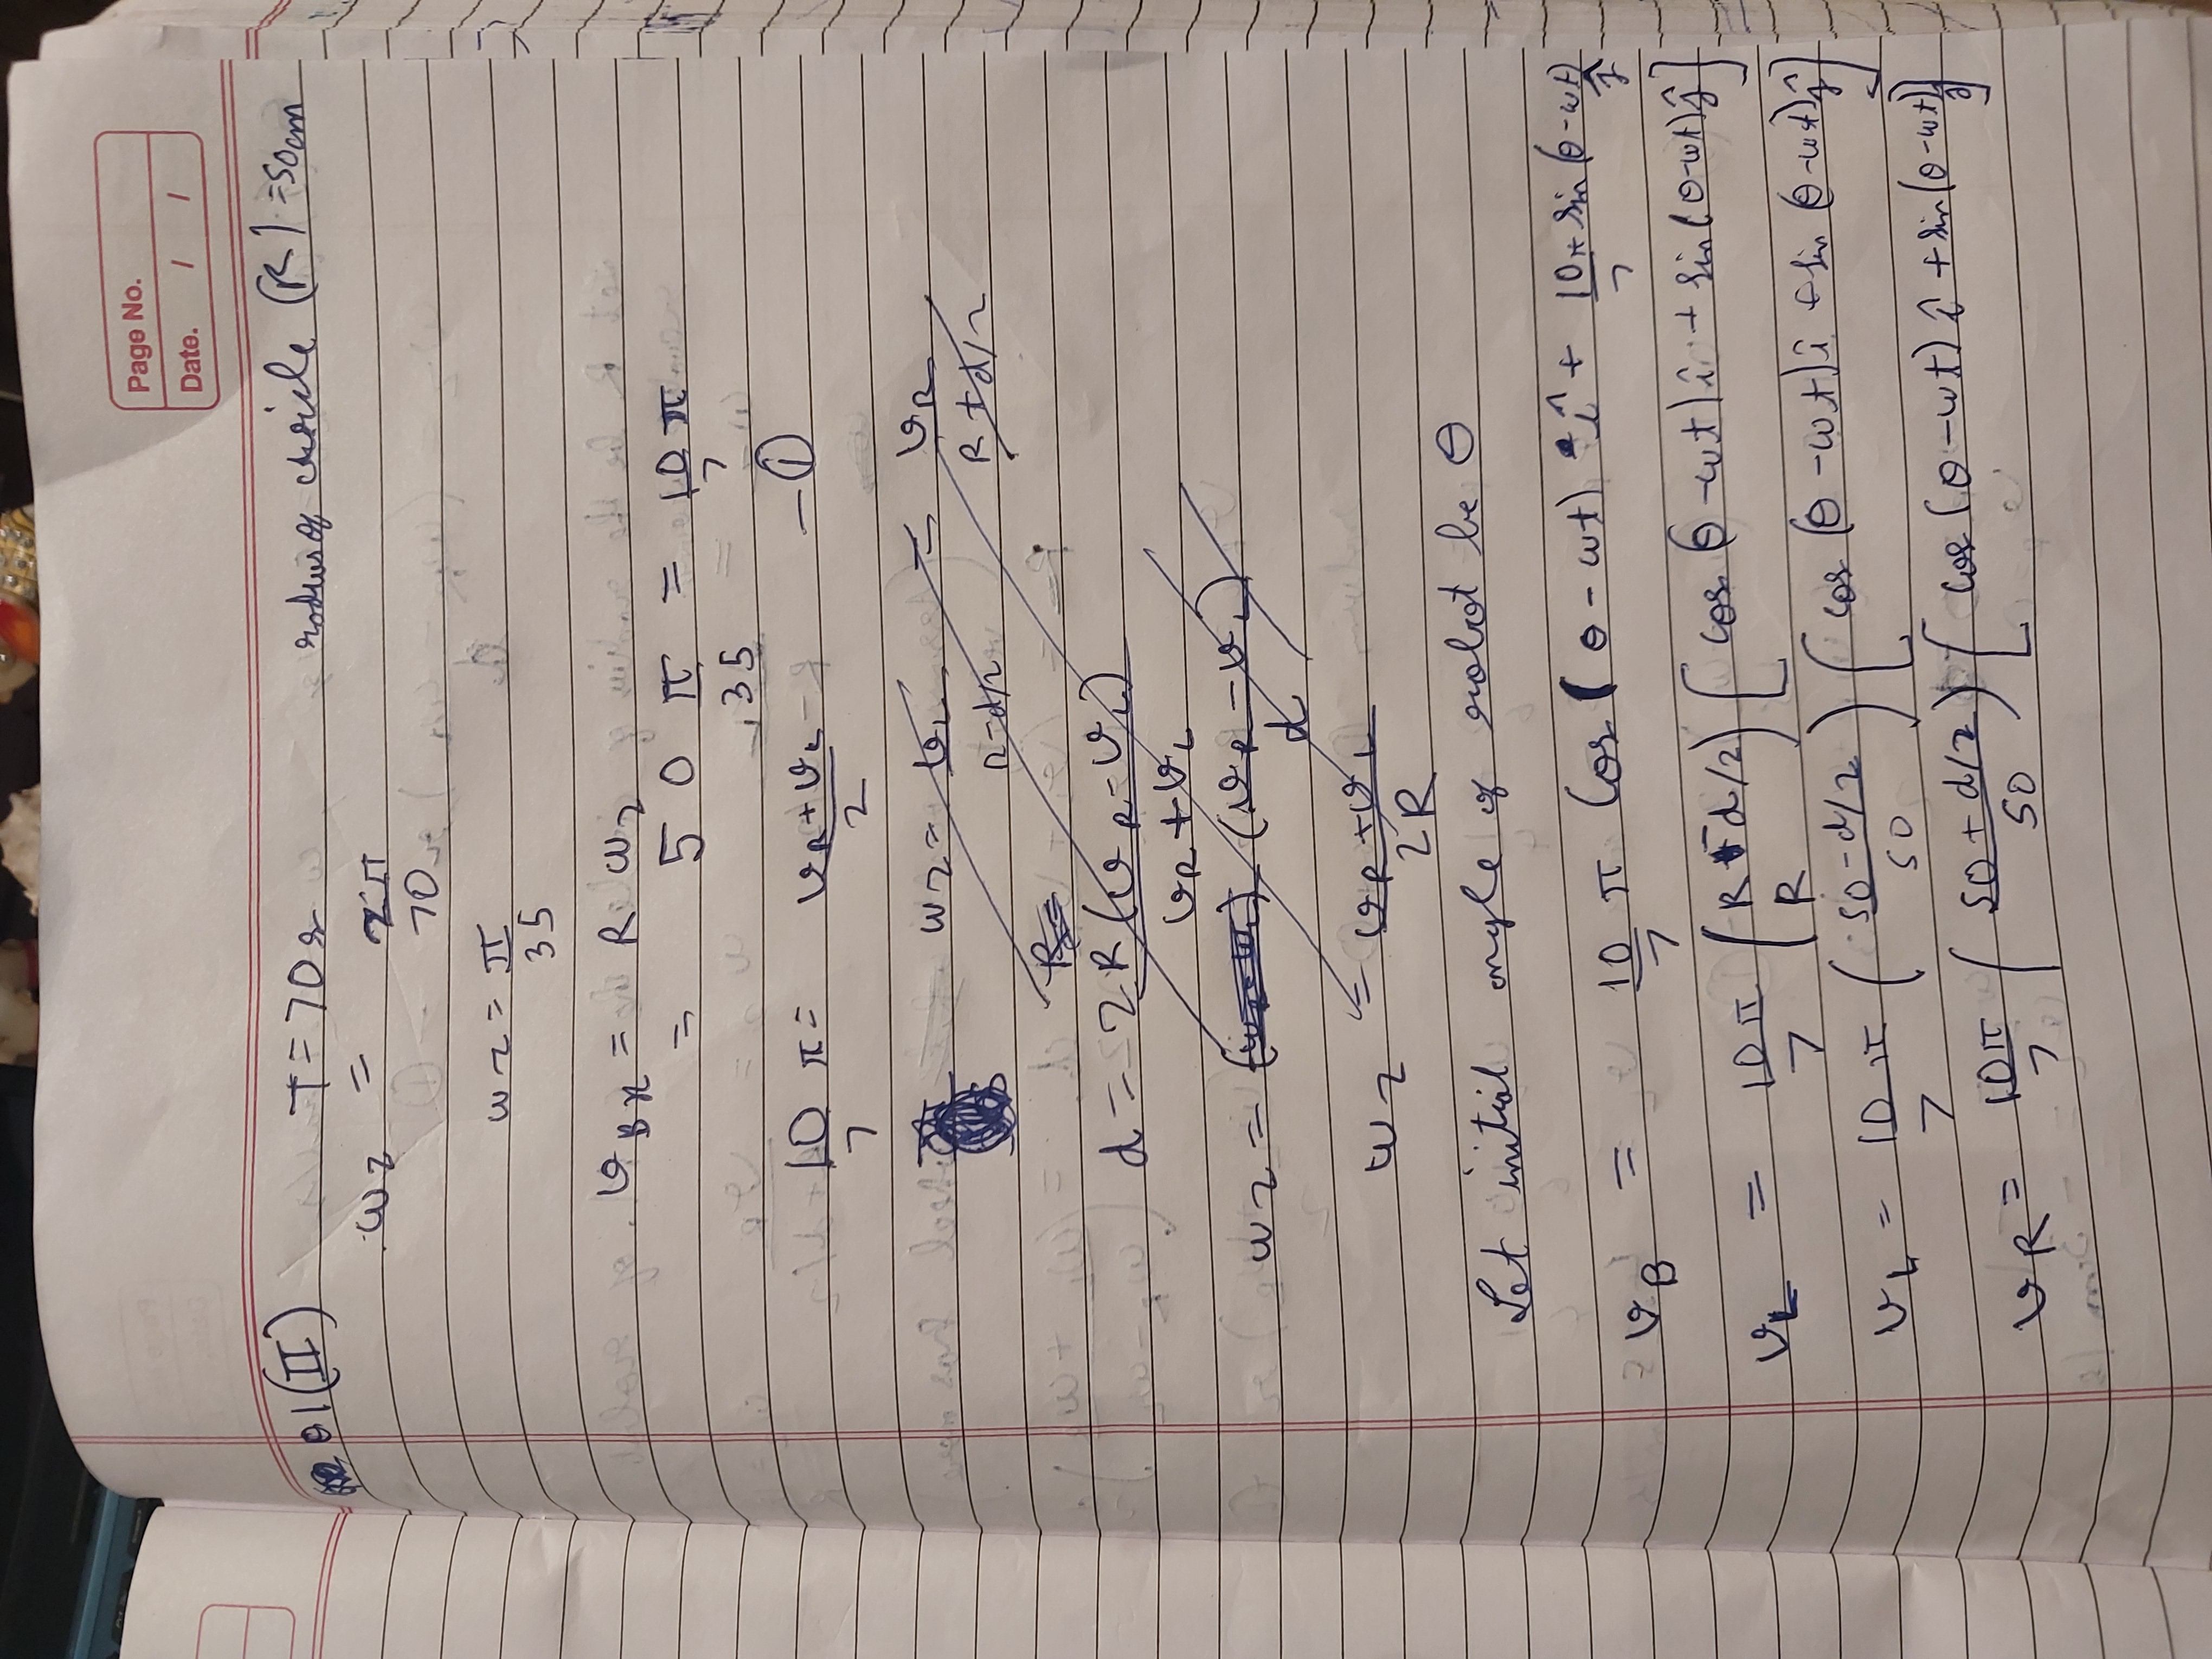 Page No.
Date. / /
Q1(II) T = 70s radius of circle (R) = 50cm
ωz = 2π/70
ωz = π/35
vBx = R ωz
= 50 π/35 = 10/7 π
10/7 π = (vR + vL)/2 — ①
ωz = vL/(R - d/2) = vR/(R + d/2)
R =
d = 2R(vR - vL)/(vR + vL)
ωz = (vR - vL)/d
ωz = (vR + vL)/2R
Let initial angle of robot be θ
vB = 10/7 π Cos(θ - ωt) î + 10π/7 sin(θ - ωt) ĵ
vL = 10π/7 ((R - d/2)/R) [cos(θ - ωt) î + sin(θ - ωt) ĵ]
vL = 10π/7 ((50 - d/2)/50) [cos(θ - ωt) î + sin(θ - ωt) ĵ]
vR = 10π/7 ((50 + d/2)/50) [cos(θ - ωt) î + sin(θ - ωt) ĵ]